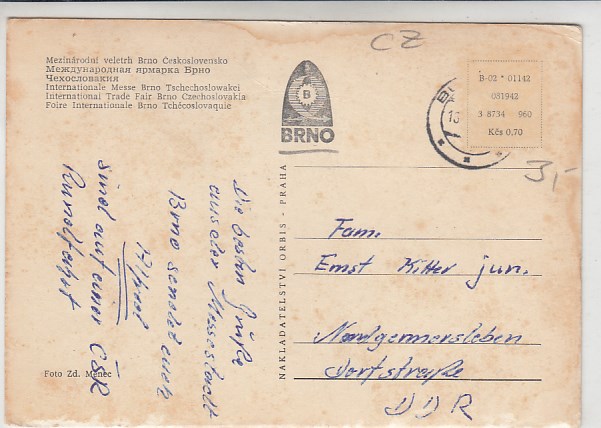 Mezinárodní veletrh Brno Československo
Международная ярмарка Брно
Чехословакия
Internationale Messe Brno Tschechoslowakei
International Trade Fair Brno Czechoslovakia
Foire Internationale Brno Tchécoslovaquie
B
BRNO
CZ
B-02 * 01142
051942
3 8734 960
Kčs 0,70
3,-
Die besten Grüße
aus der Messestadt
Brno sendet euch
sind auf einer ČSR
Rundfahrt
NAKLADATELSTVÍ ORBIS - PRAHA
Fam.
Ernst Kitter jun.
Nordgermersleben
Dorfstraße
DDR
Foto Zd. Menec